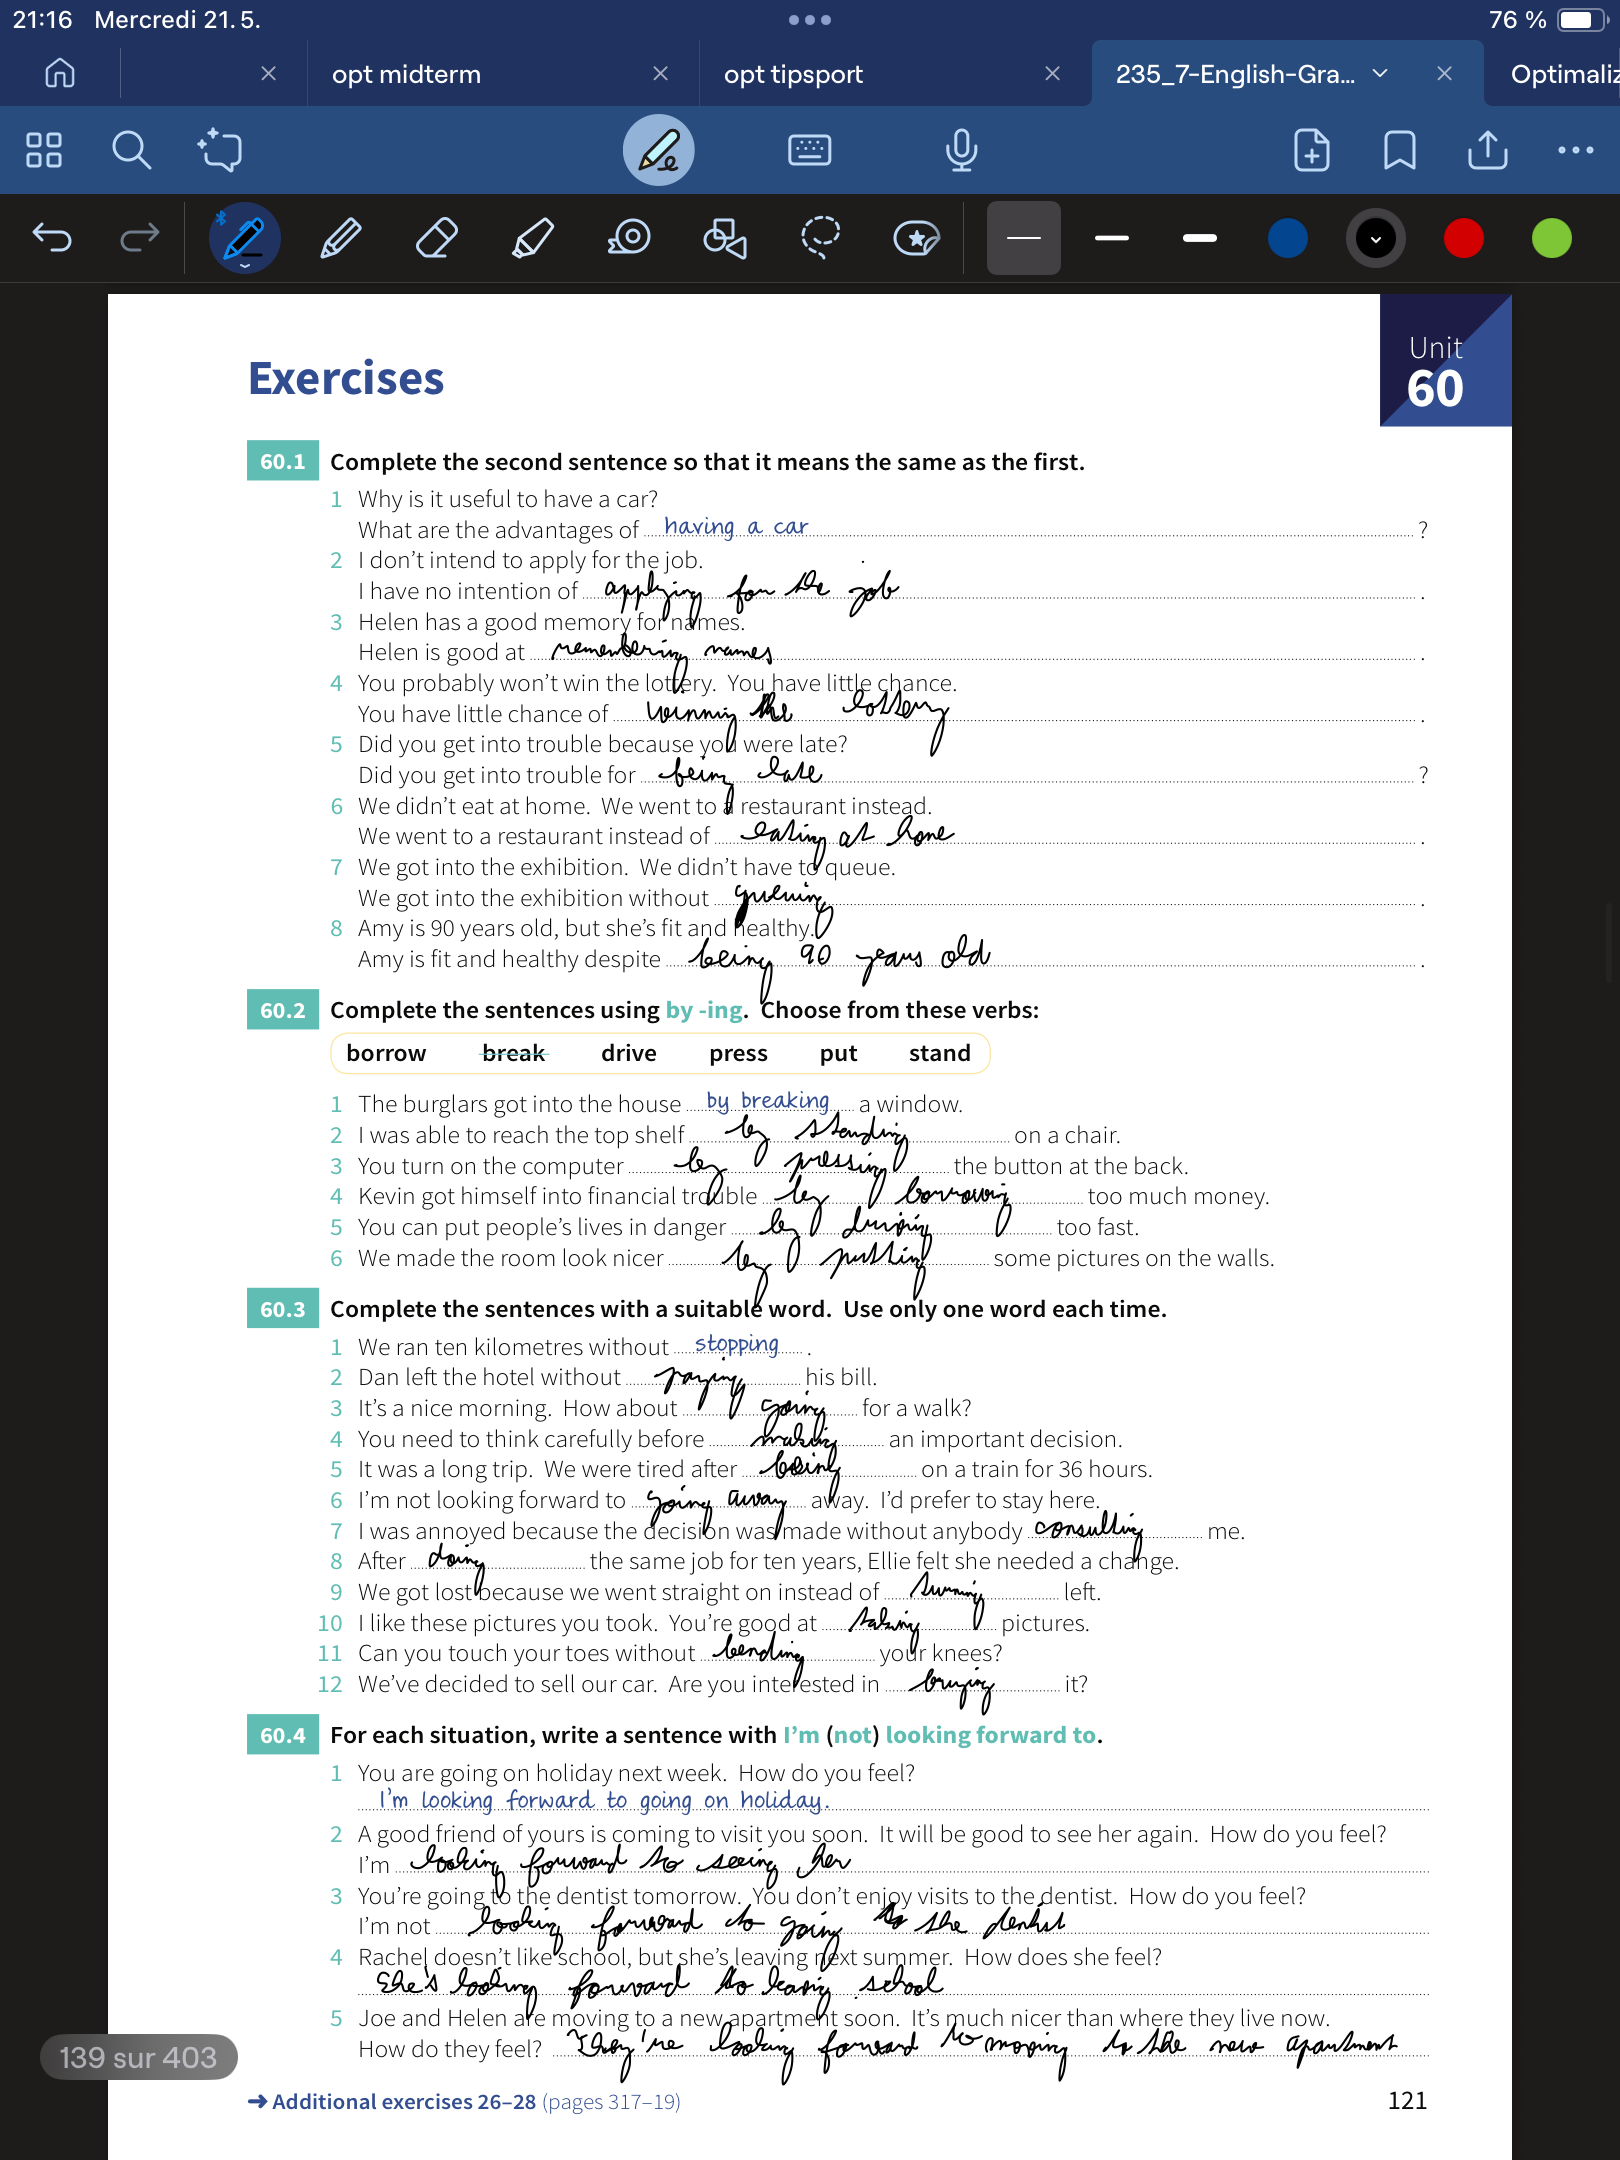 21:16 Mercredi 21. 5. 76 %
opt midterm opt tipsport 235_7-English-Gra... Optimaliz
Unit
60
Exercises
60.1 Complete the second sentence so that it means the same as the first.
1 Why is it useful to have a car?
What are the advantages of having a car ?
2 I don't intend to apply for the job.
I have no intention of applying for the job .
3 Helen has a good memory for names.
Helen is good at remembering names .
4 You probably won't win the lottery. You have little chance.
You have little chance of winning the lottery .
5 Did you get into trouble because you were late?
Did you get into trouble for being late ?
6 We didn't eat at home. We went to a restaurant instead.
We went to a restaurant instead of eating at home .
7 We got into the exhibition. We didn't have to queue.
We got into the exhibition without queuing .
8 Amy is 90 years old, but she's fit and healthy.
Amy is fit and healthy despite being 90 years old .
60.2 Complete the sentences using by -ing. Choose from these verbs:
borrow break drive press put stand
1 The burglars got into the house by breaking a window.
2 I was able to reach the top shelf by standing on a chair.
3 You turn on the computer by pressing the button at the back.
4 Kevin got himself into financial trouble by borrowing too much money.
5 You can put people's lives in danger by driving too fast.
6 We made the room look nicer by putting some pictures on the walls.
60.3 Complete the sentences with a suitable word. Use only one word each time.
1 We ran ten kilometres without stopping .
2 Dan left the hotel without paying his bill.
3 It's a nice morning. How about going for a walk?
4 You need to think carefully before making an important decision.
5 It was a long trip. We were tired after being on a train for 36 hours.
6 I'm not looking forward to going away away. I'd prefer to stay here.
7 I was annoyed because the decision was made without anybody consulting me.
8 After doing the same job for ten years, Ellie felt she needed a change.
9 We got lost because we went straight on instead of turning left.
10 I like these pictures you took. You're good at taking pictures.
11 Can you touch your toes without bending your knees?
12 We've decided to sell our car. Are you interested in buying it?
60.4 For each situation, write a sentence with I'm (not) looking forward to.
1 You are going on holiday next week. How do you feel?
I'm looking forward to going on holiday.
2 A good friend of yours is coming to visit you soon. It will be good to see her again. How do you feel?
I'm looking forward to seeing her
3 You're going to the dentist tomorrow. You don't enjoy visits to the dentist. How do you feel?
I'm not looking forward to going to the dentist
4 Rachel doesn't like school, but she's leaving next summer. How does she feel?
She's looking forward to leaving school
5 Joe and Helen are moving to a new apartment soon. It's much nicer than where they live now.
How do they feel? They're looking forward to moving to the new apartment
139 sur 403
➜ Additional exercises 26–28 (pages 317–19) 121